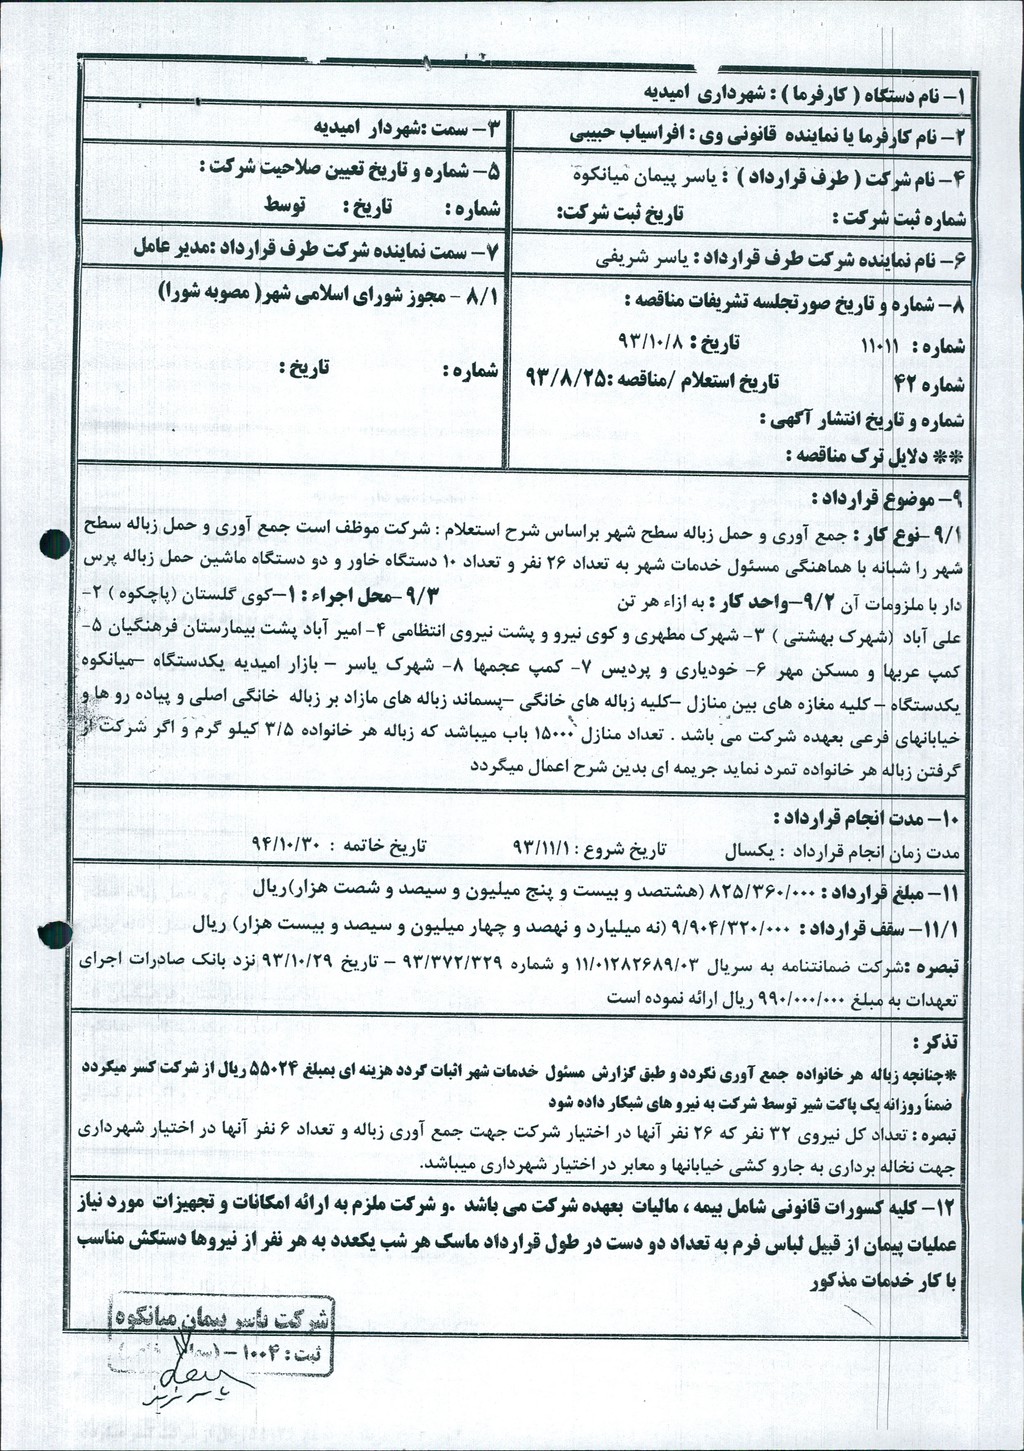 ۱- نام دستگاه ( کارفرما ) : شهرداری امیدیه
۲- نام کارفرما یا نماینده قانونی وی : افراسیاب حبیبی
۳- سمت :شهردار امیدیه
۴- نام شرکت ( طرف قرارداد ) : یاسر پیمان میانکوه
شماره ثبت شرکت : تاریخ ثبت شرکت:
۵- شماره و تاریخ تعیین صلاحیت شرکت :
شماره : تاریخ : توسط
۶- نام نماینده شرکت طرف قرارداد : یاسر شریفی
۷- سمت نماینده شرکت طرف قرارداد :مدیر عامل
۸- شماره و تاریخ صورتجلسه تشریفات مناقصه :
شماره : ۱۱۰۱۱ تاریخ : ۹۳/۱۰/۸
شماره ۴۲ تاریخ استعلام /مناقصه :۹۳/۸/۲۵
شماره و تاریخ انتشار آگهی :
** دلایل ترک مناقصه :
۸/۱ - مجوز شورای اسلامی شهر( مصوبه شورا)
شماره : تاریخ :
۹- موضوع قرارداد :
۹/۱ -نوع کار : جمع آوری و حمل زباله سطح شهر براساس شرح استعلام : شرکت موظف است جمع آوری و حمل زباله سطح
شهر را شبانه با هماهنگی مسئول خدمات شهر به تعداد ۲۶ نفر و تعداد ۱۰ دستگاه خاور و دو دستگاه ماشین حمل زباله پرس
دار با ملزومات آن ۹/۲-واحد کار : به ازاء هر تن ۹/۳-محل اجراء : ۱-کوی گلستان (پاچکوه ) ۲-
علی آباد (شهرک بهشتی ) ۳- شهرک مطهری و کوی نیرو و پشت نیروی انتظامی ۴- امیر آباد پشت بیمارستان فرهنگیان ۵-
کمپ عربها و مسکن مهر ۶- خودیاری و پردیس ۷- کمپ عجمها ۸- شهرک یاسر - بازار امیدیه یکدستگاه -میانکوه
یکدستگاه - کلیه مغازه های بین منازل -کلیه زباله های خانگی -پسماند زباله های مازاد بر زباله خانگی اصلی و پیاده رو ها و
خیابانهای فرعی بعهده شرکت می باشد . تعداد منازل ۱۵۰۰۰ باب میباشد که زباله هر خانواده ۳/۵ کیلو گرم و اگر شرکت از
گرفتن زباله هر خانواده تمرد نماید جریمه ای بدین شرح اعمال میگردد
۱۰- مدت انجام قرارداد :
مدت زمان انجام قرارداد : یکسال تاریخ شروع : ۹۳/۱۱/۱ تاریخ خاتمه : ۹۴/۱۰/۳۰
۱۱- مبلغ قرارداد : ۸۲۵/۳۶۰/۰۰۰ (هشتصد و بیست و پنج میلیون و سیصد و شصت هزار)ریال
۱۱/۱- سقف قرارداد : ۹/۹۰۴/۳۲۰/۰۰۰ (نه میلیارد و نهصد و چهار میلیون و سیصد و بیست هزار) ریال
تبصره :شرکت ضمانتنامه به سریال ۱۱/۰۱۲۸۲۶۸۹/۰۳ و شماره ۹۳/۳۷۲/۳۲۹ - تاریخ ۹۳/۱۰/۲۹ نزد بانک صادرات اجرای
تعهدات به مبلغ ۹۹۰/۰۰۰/۰۰۰ ریال ارائه نموده است
تذکر :
*چنانچه زباله هر خانواده جمع آوری نگردد و طبق گزارش مسئول خدمات شهر اثبات گردد هزینه ای بمبلغ ۵۵۰۲۴ ریال از شرکت کسر میگردد
ضمناً روزانه یک پاکت شیر توسط شرکت به نیرو های شبکار داده شود
تبصره : تعداد کل نیروی ۳۲ نفر که ۲۶ نفر آنها در اختیار شرکت جهت جمع آوری زباله و تعداد ۶ نفر آنها در اختیار شهرداری
جهت نخاله برداری به جارو کشی خیابانها و معابر در اختیار شهرداری میباشد.
۱۲- کلیه کسورات قانونی شامل بیمه ، مالیات بعهده شرکت می باشد .و شرکت ملزم به ارائه امکانات و تجهیزات مورد نیاز
عملیات پیمان از قبیل لباس فرم به تعداد دو دست در طول قرارداد ماسک هر شب یکعدد به هر نفر از نیروها دستکش مناسب
با کار خدمات مذکور
شرکت یاسر پیمان میانکوه
ثبت : ۱۰۰۴